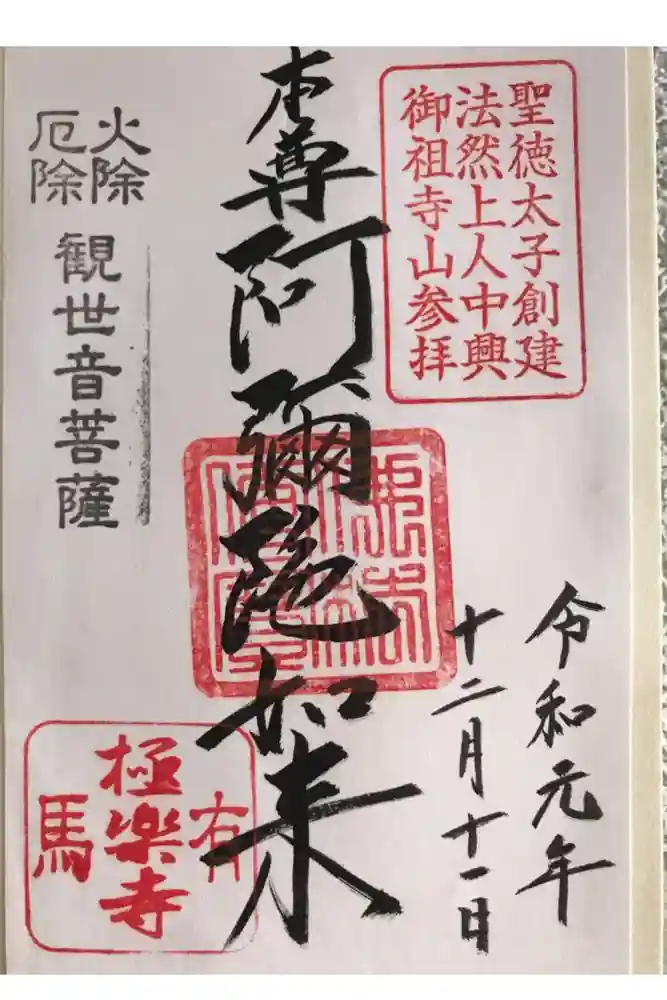 聖徳太子創建
法然上人中興
御祖寺山参拝
令和元年
十二月十一日
本尊阿彌陀如来
火除
厄除
観世音菩薩
有馬
極楽寺